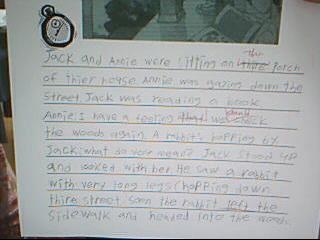 Jack and Annie were sitting on the Porch
of thier house. Annie was gazing down the
Street. Jack was reading a book
Annie: I have a feeling we should check
the woods again. A rabbit's hopping by
Jack: what do you mean? Jack stood up
and looked with her. He saw a rabbit
with very long legs (hopping down
there street soon the rabbit left the
Sidewalk and headed into the woods.